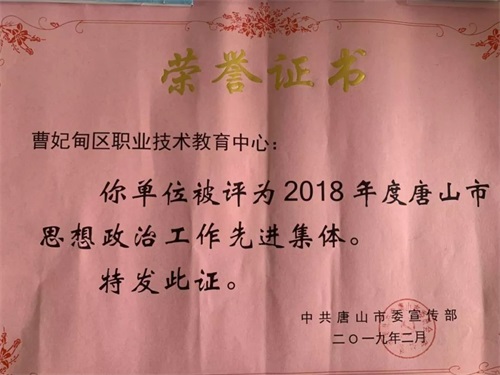 荣誉证书
曹妃甸区职业技术教育中心：
你单位被评为2018年度唐山市
思想政治工作先进集体。
特发此证。
中共唐山市委宣传部
二〇一九年二月